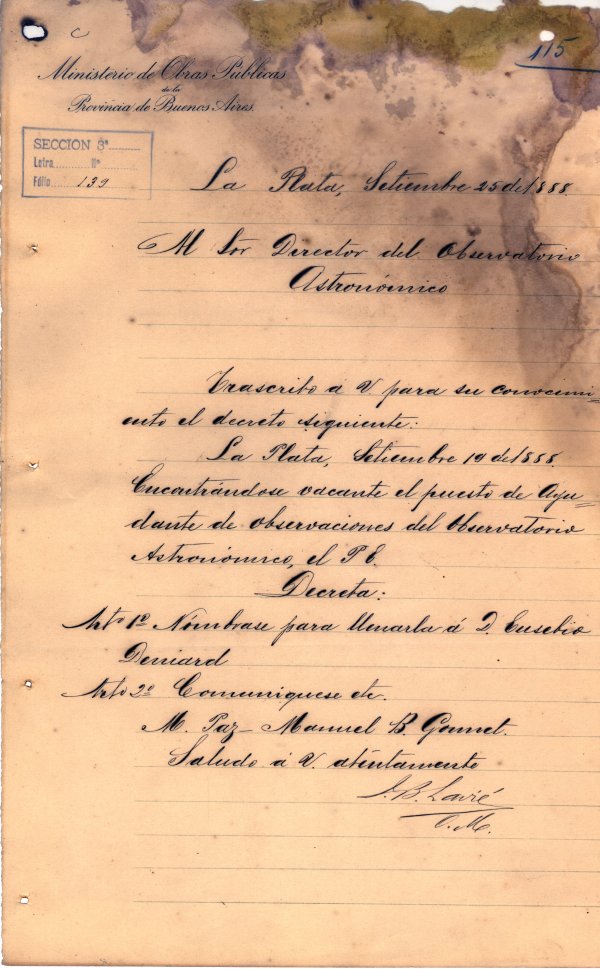 C
115
Ministerio de Obras Públicas
de la
Provincia de Buenos Aires.
SECCIÓN 3ª
Letra Nº
Fólio 139
La Plata, Setiembre 25 de 1888.
Al Sor Director del Observatorio
Astronómico
Trascribo á V. para su conocimi-
ento el decreto siguiente:
La Plata, Setiembre 19 de 1888.
Encontrándose vacante el puesto de Ayu-
dante de observaciones del Observatorio
Astronómico, el P. E.
Decreta:
Arto 1º Nómbrase para llenarla á D. Eusebio
Deniard
Arto 2º Comuníquese etc.
M. Paz - Manuel B. Gonnet.
Saludo á V. aténtamente
J. B. Lavié
O. M.